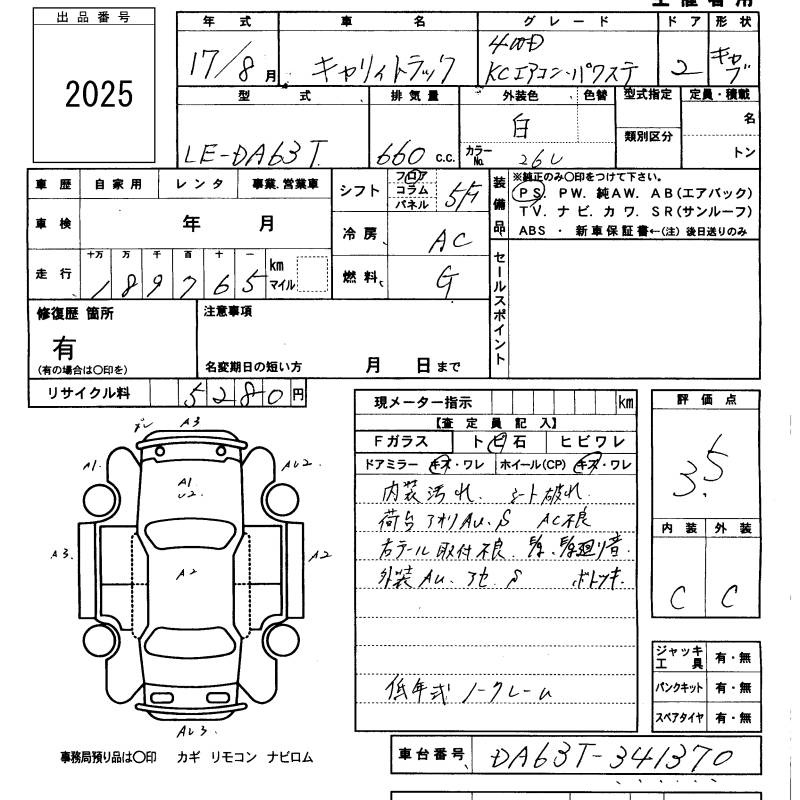 出品番号
2025
年式 車名 グレード ドア 形状
17/8月 キャリイトラック 4WD KCエアコン・パワステ 2 キャブ
型式 排気量 外装色 色替 型式指定 定員・積載
LE-DA63T 660 c.c. 白 類別区分 名
カラーNo. 26U トン
車歴 自家用 レンタ 事業.営業車
車検 年 月
走行 十万 万 千 百 十 一 km マイル
1 8 9 7 6 5
シフト フロア コラム パネル 5F
冷房 AC
燃料 G
装備品
※純正のみ○印をつけて下さい。
PS. PW. 純AW. AB(エアバック)
TV. ナビ. カワ. SR(サンルーフ)
ABS ・ 新車保証書←(注) 後日送りのみ
セールスポイント
修復歴 箇所
有
(有の場合は○印を)
注意事項
名変期日の短い方 月 日まで
リサイクル料 5 2 8 0 円
現メーター指示 km
【査定員記入】
Fガラス トビ石 ヒビワレ
ドアミラー キズ・ワレ ホイール(CP) キズ・ワレ
内装汚れ. シート破れ.
荷台アオリAU.S AC不良
右テール取付不良.
外装AU. S
低年式 ノークレーム
評価点
3.5
内装 外装
C C
ジャッキ工具 有・無
パンクキット 有・無
スペアタイヤ 有・無
A3
A1.
A1
U2.
AU2.
A3.
A2
A2
AU3.
事務局預り品は○印 カギ リモコン ナビロム
車台番号 DA63T-341370